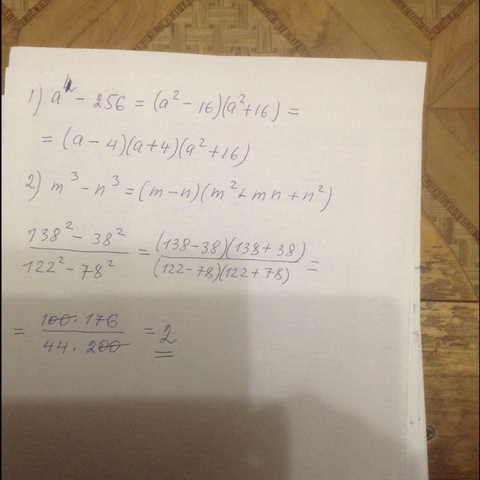 1) a⁴ - 256 = (a² - 16)(a² + 16) =
= (a - 4)(a + 4)(a² + 16)
2) m³ - n³ = (m - n)(m² + mn + n²)
138² - 38² / 122² - 78² = (138 - 38)(138 + 38) / (122 - 78)(122 + 78) =
= 100 · 176 / 44 · 200 = 2